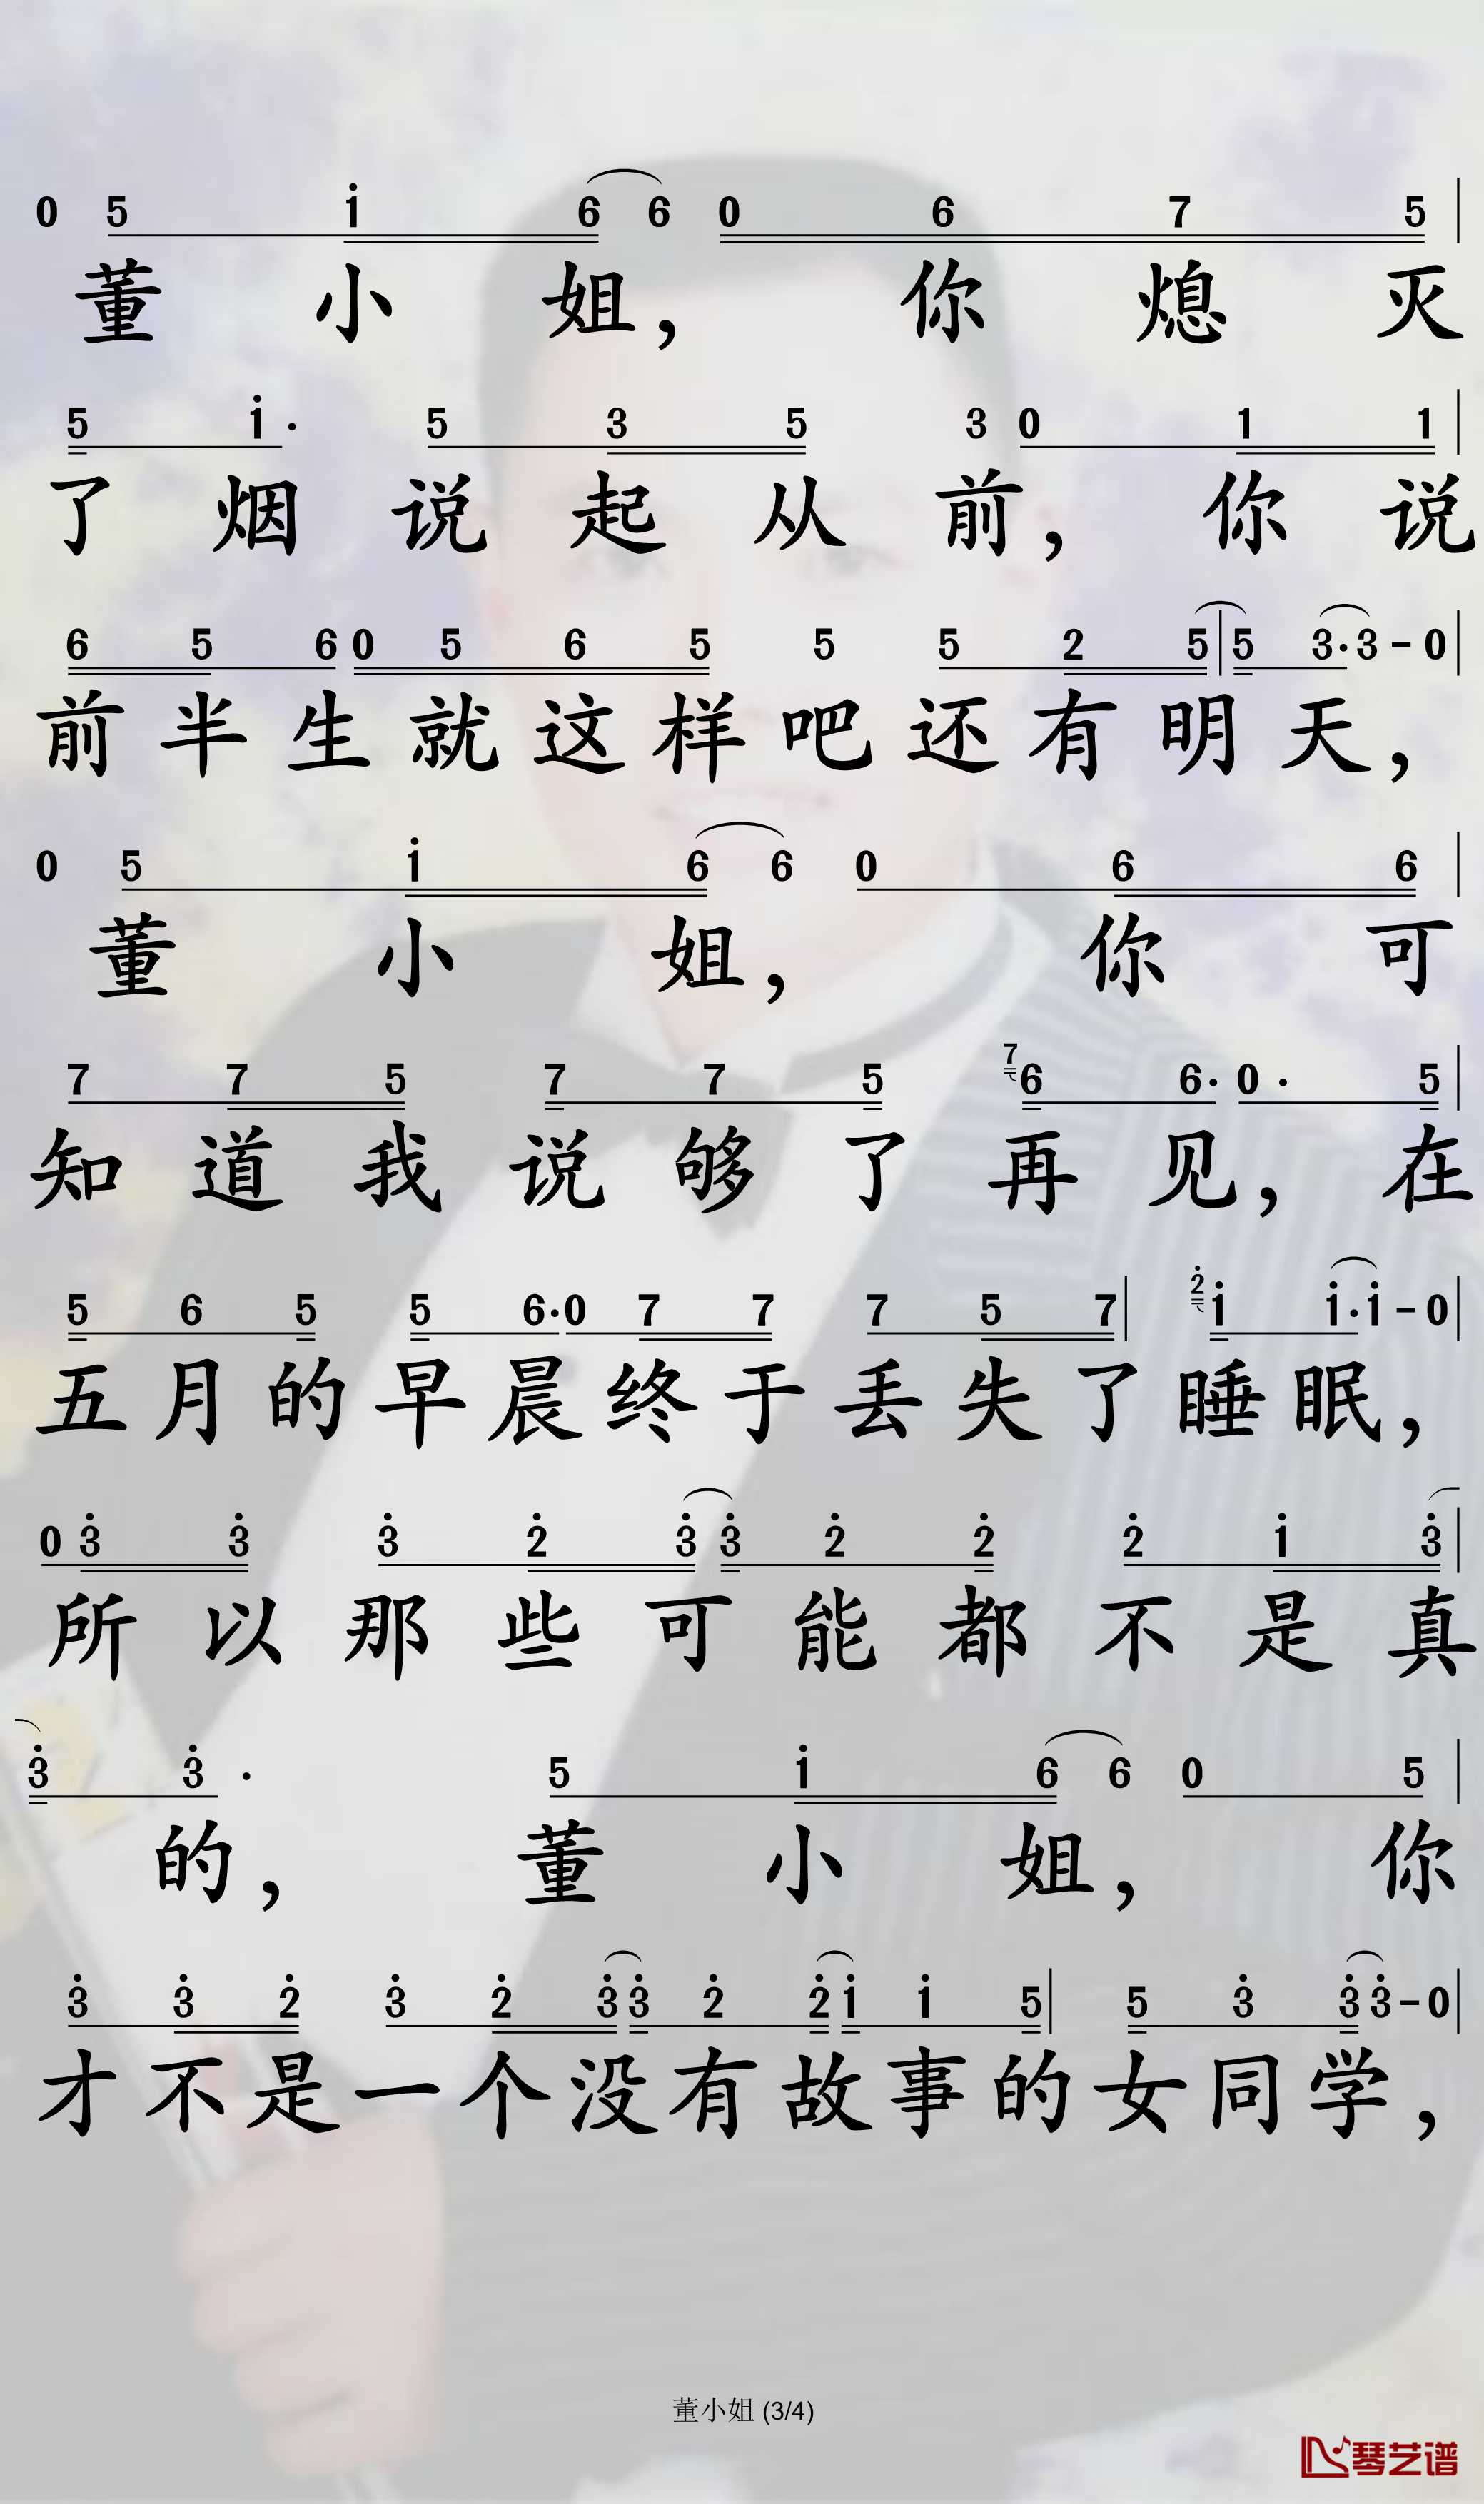 0 5 i 6 6 0 6 7 5
董小姐，你熄灭
5 i· 5 3 5 3 0 1 1
了烟说起从前，你说
6 5 6 0 5 6 5 5 5 2 5 | 5 3·3 - 0
前半生就这样吧还有明天，
0 5 i 6 6 0 6 6
董小姐，你可
7 7 5 7 7 5 7 6 6· 0· 5
知道我说够了再见，在
5 6 5 5 6· 0 7 7 7 5 7 | 2 i i·i - 0
五月的早晨终于丢失了睡眠，
0 3 3 3 2 3 3 2 2 2 i 3
所以那些可能都不是真
3 3· 5 i 6 6 0 5
的，董小姐，你
3 3 2 3 2 3 3 2 2 i i 5 | 5 3 3 3 - 0
才不是一个没有故事的女同学，
董小姐 (3/4)
琴艺谱